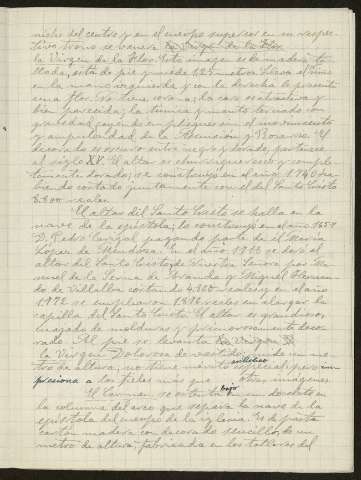 nicho del centro y en el cuerpo superior en su respec-
tivo trono se venera la Virgen de la Flor
la Virgen de la Flor. Esta imagen es de madera ta-
llada, está de pie y mide 1,25 metros. Lleva al niño
en la mano izquierda y con la derecha le presenta
una flor. No tiene corona; la cara es atractiva y
bien parecida; la túnica y manto tallado con
gravedad, cuando en pliegues el movimiento
y amplitud, de la Asunción y Rosario. El
decorado es oscuro entre negro y dorado, pertenece
al siglo XV. El altar es churrigueresco y comple-
tamente dorado; se construyó en el año 1740 ha-
biendo costado juntamente con el del Santo Cristo
6300 reales.
El altar del Santo Cristo se halla en la
nave de la epístola; lo construyó en el año 1654
D. Pedro Carvajal pagando parte de él María
López de Mendoza. En el año 1763 se doró el
altar del Santo Cristo, de Nuestra Señora por Ma-
nuel de la Serna de Aranda y Miguel
de Villalba costando 4.300 reales y en el año
1772 se emplearon 1.816 reales en alargar la
capilla del Santo Cristo. El altar es grandioso,
cuajado de molduras y primorosamente deco-
rado. Al pie se levanta la Virgen D
la Virgen Dolorosa de vestir; mide un me-
tro de altura; no tiene mérito artístico especial, pero im-
presiona a los fieles más que otras imágenes.
El Carmen, se ostenta bajo un doselete en
la columna del arco que separa la nave de la
epístola del cuerpo de la iglesia. Es de pasta
cartón madera con decorado sencillo, de un
metro de altura, fabricada en los talleres del